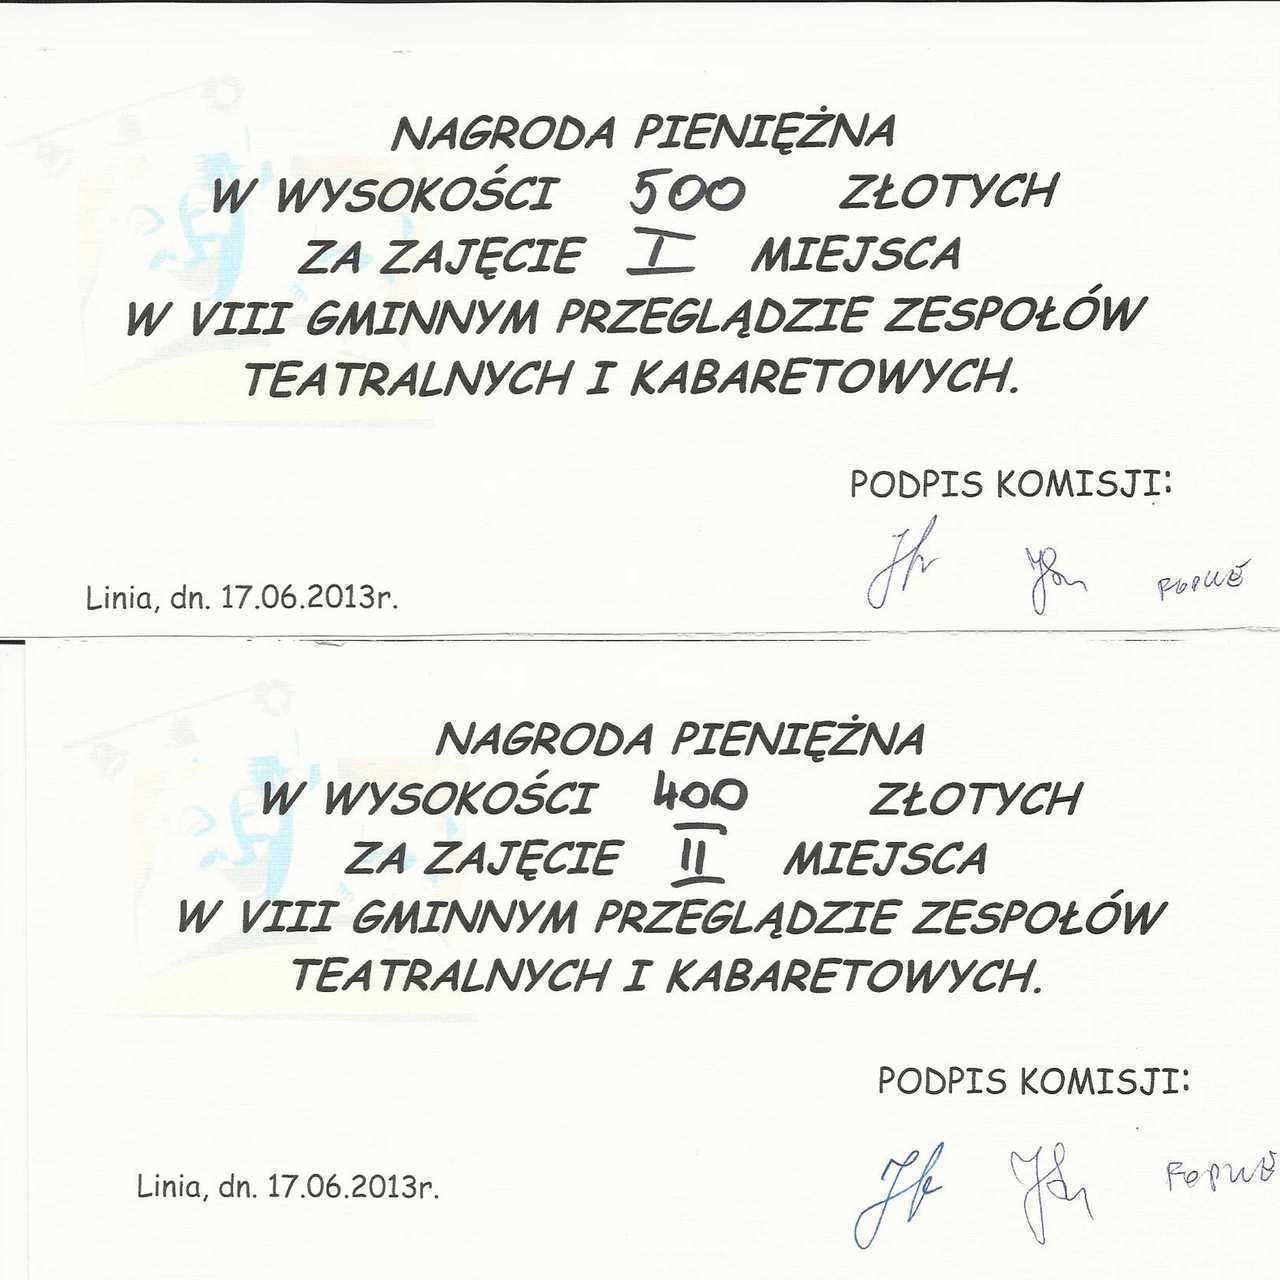 NAGRODA PIENIĘŻNA
W WYSOKOŚCI 500 ZŁOTYCH
ZA ZAJĘCIE I MIEJSCA
W VIII GMINNYM PRZEGLĄDZIE ZESPOŁÓW
TEATRALNYCH I KABARETOWYCH.
PODPIS KOMISJI:
Linia, dn. 17.06.2013r.
NAGRODA PIENIĘŻNA
W WYSOKOŚCI 400 ZŁOTYCH
ZA ZAJĘCIE II MIEJSCA
W VIII GMINNYM PRZEGLĄDZIE ZESPOŁÓW
TEATRALNYCH I KABARETOWYCH.
PODPIS KOMISJI:
Linia, dn. 17.06.2013r.